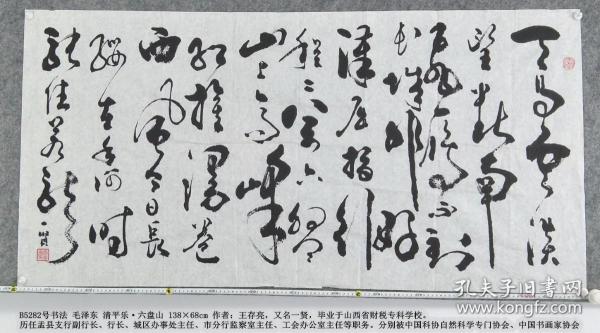 天高云淡
望断南
飞雁不到
长城非好
汉屈指行
程二万六盘
山上高峰
红旗漫卷
西风今日长
缨在手何时
缚住苍龙 一贤
孔夫子旧书网
B5282号书法 毛泽东 清平乐·六盘山 138×68cm 作者：王存亮，又名一贤，毕业于山西省财税专科学校。
历任盂县支行副行长、行长、城区办事处主任、市分行监察室主任、工会办公室主任等职务。分别被中国科协自然科学专门协会、中国书画家协会